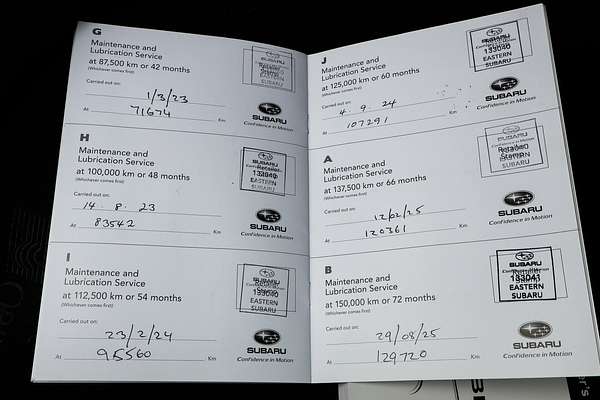 G
Maintenance and
Lubrication Service
at 87,500 km or 42 months
(Whichever comes first)
SUBARU
133040
EASTERN
SUBARU
Carried out on:
1/3/23
At 71674 Km
SUBARU
Confidence in Motion
H
Maintenance and
Lubrication Service
at 100,000 km or 48 months
(Whichever comes first)
SUBARU
Retailer
133040
EASTERN
SUBARU
Carried out on:
14.8.23
At 83542 Km
SUBARU
Confidence in Motion
I
Maintenance and
Lubrication Service
at 112,500 km or 54 months
(Whichever comes first)
SUBARU
133040
EASTERN
SUBARU
Carried out on:
23/2/24
At 95560 Km
SUBARU
Confidence in Motion
J
Maintenance and
Lubrication Service
at 125,000 km or 60 months
(Whichever comes first)
SUBARU
133040
EASTERN
SUBARU
Carried out on:
4.9.24
At 107291 Km
SUBARU
Confidence in Motion
A
Maintenance and
Lubrication Service
at 137,500 km or 66 months
(Whichever comes first)
SUBARU
Retailer
133040
Stamp
EASTERN
SUBARU
Carried out on:
12/02/25
At 120361 Km
SUBARU
Confidence in Motion
B
Maintenance and
Lubrication Service
at 150,000 km or 72 months
(Whichever comes first)
SUBARU
133041
EASTERN
SUBARU
Carried out on:
29/08/25
At 129720 Km
SUBARU
Confidence in Motion